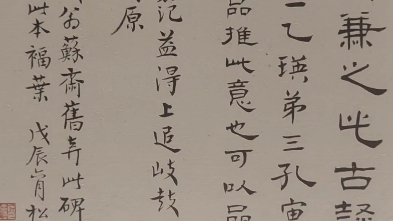 兼之此古
一乙瑛弟三孔
品推此意也可以品
記益得上追岐鼓
原
翁蘇齋舊弆此碑
此本福葉 戊辰 松